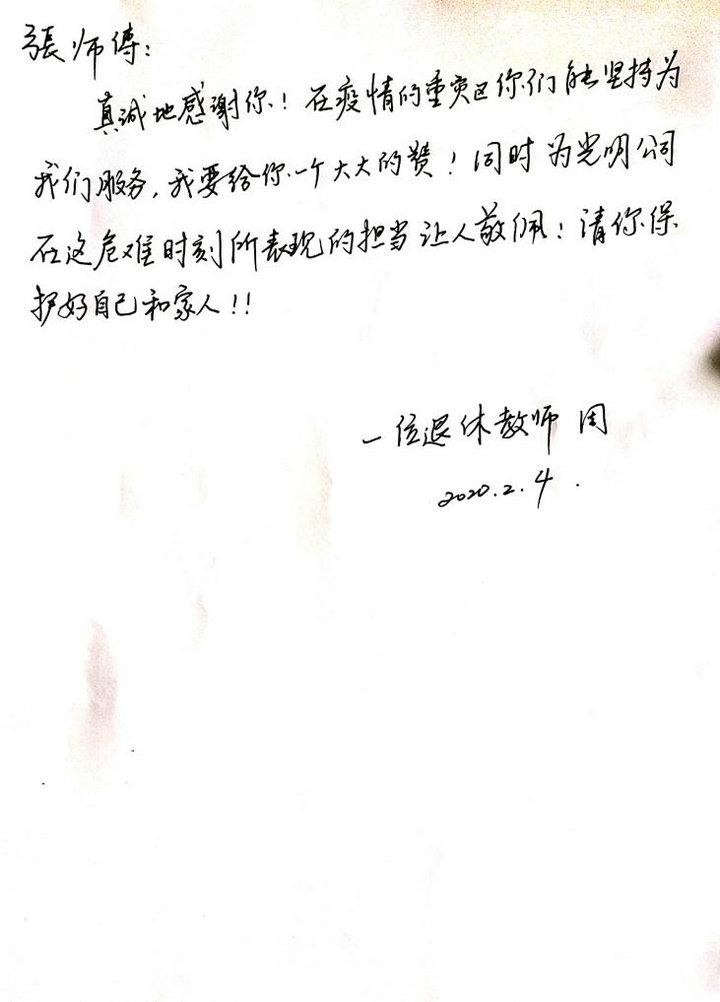 張师傅：
真诚地感谢你！在疫情的重灾区你们能坚持为
我们服务，我要给你一个大大的赞！同时为光明公司
在这危难时刻所表现的担当让人敬佩！请你保
护好自己和家人！！
一位退休教师 周
2020.2.4.